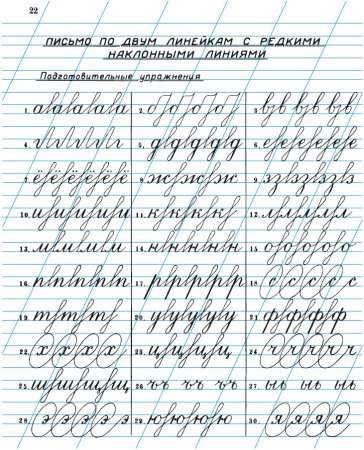 22
ПИСЬМО ПО ДВУМ ЛИНЕЙКАМ С РЕДКИМИ
НАКЛОННЫМИ ЛИНИЯМИ
Подготовительные упражнения
1. а а а а а 2. б б б б 3. в в в в
4. г г г г 5. д д д д д 6. е е е е е
7. ё ё ё ё ё 8. ж ж ж 9. з з з з
10. и и и и и 11. к к к к 12. л л л л
13. м м м м 14. н н н н 15. о о о о о
16. п п п п п 17. р р р р р 18. с с с с
19. т т т т 20. у у у у у 21. ф ф ф ф
22. х х х х 23. ц ц ц ц 24. ч ч ч ч
25. ш ш щ щ 26. ъ ъ ъ 27. ы ы ь
28. э э э э э 29. ю ю ю ю 30. я я я я